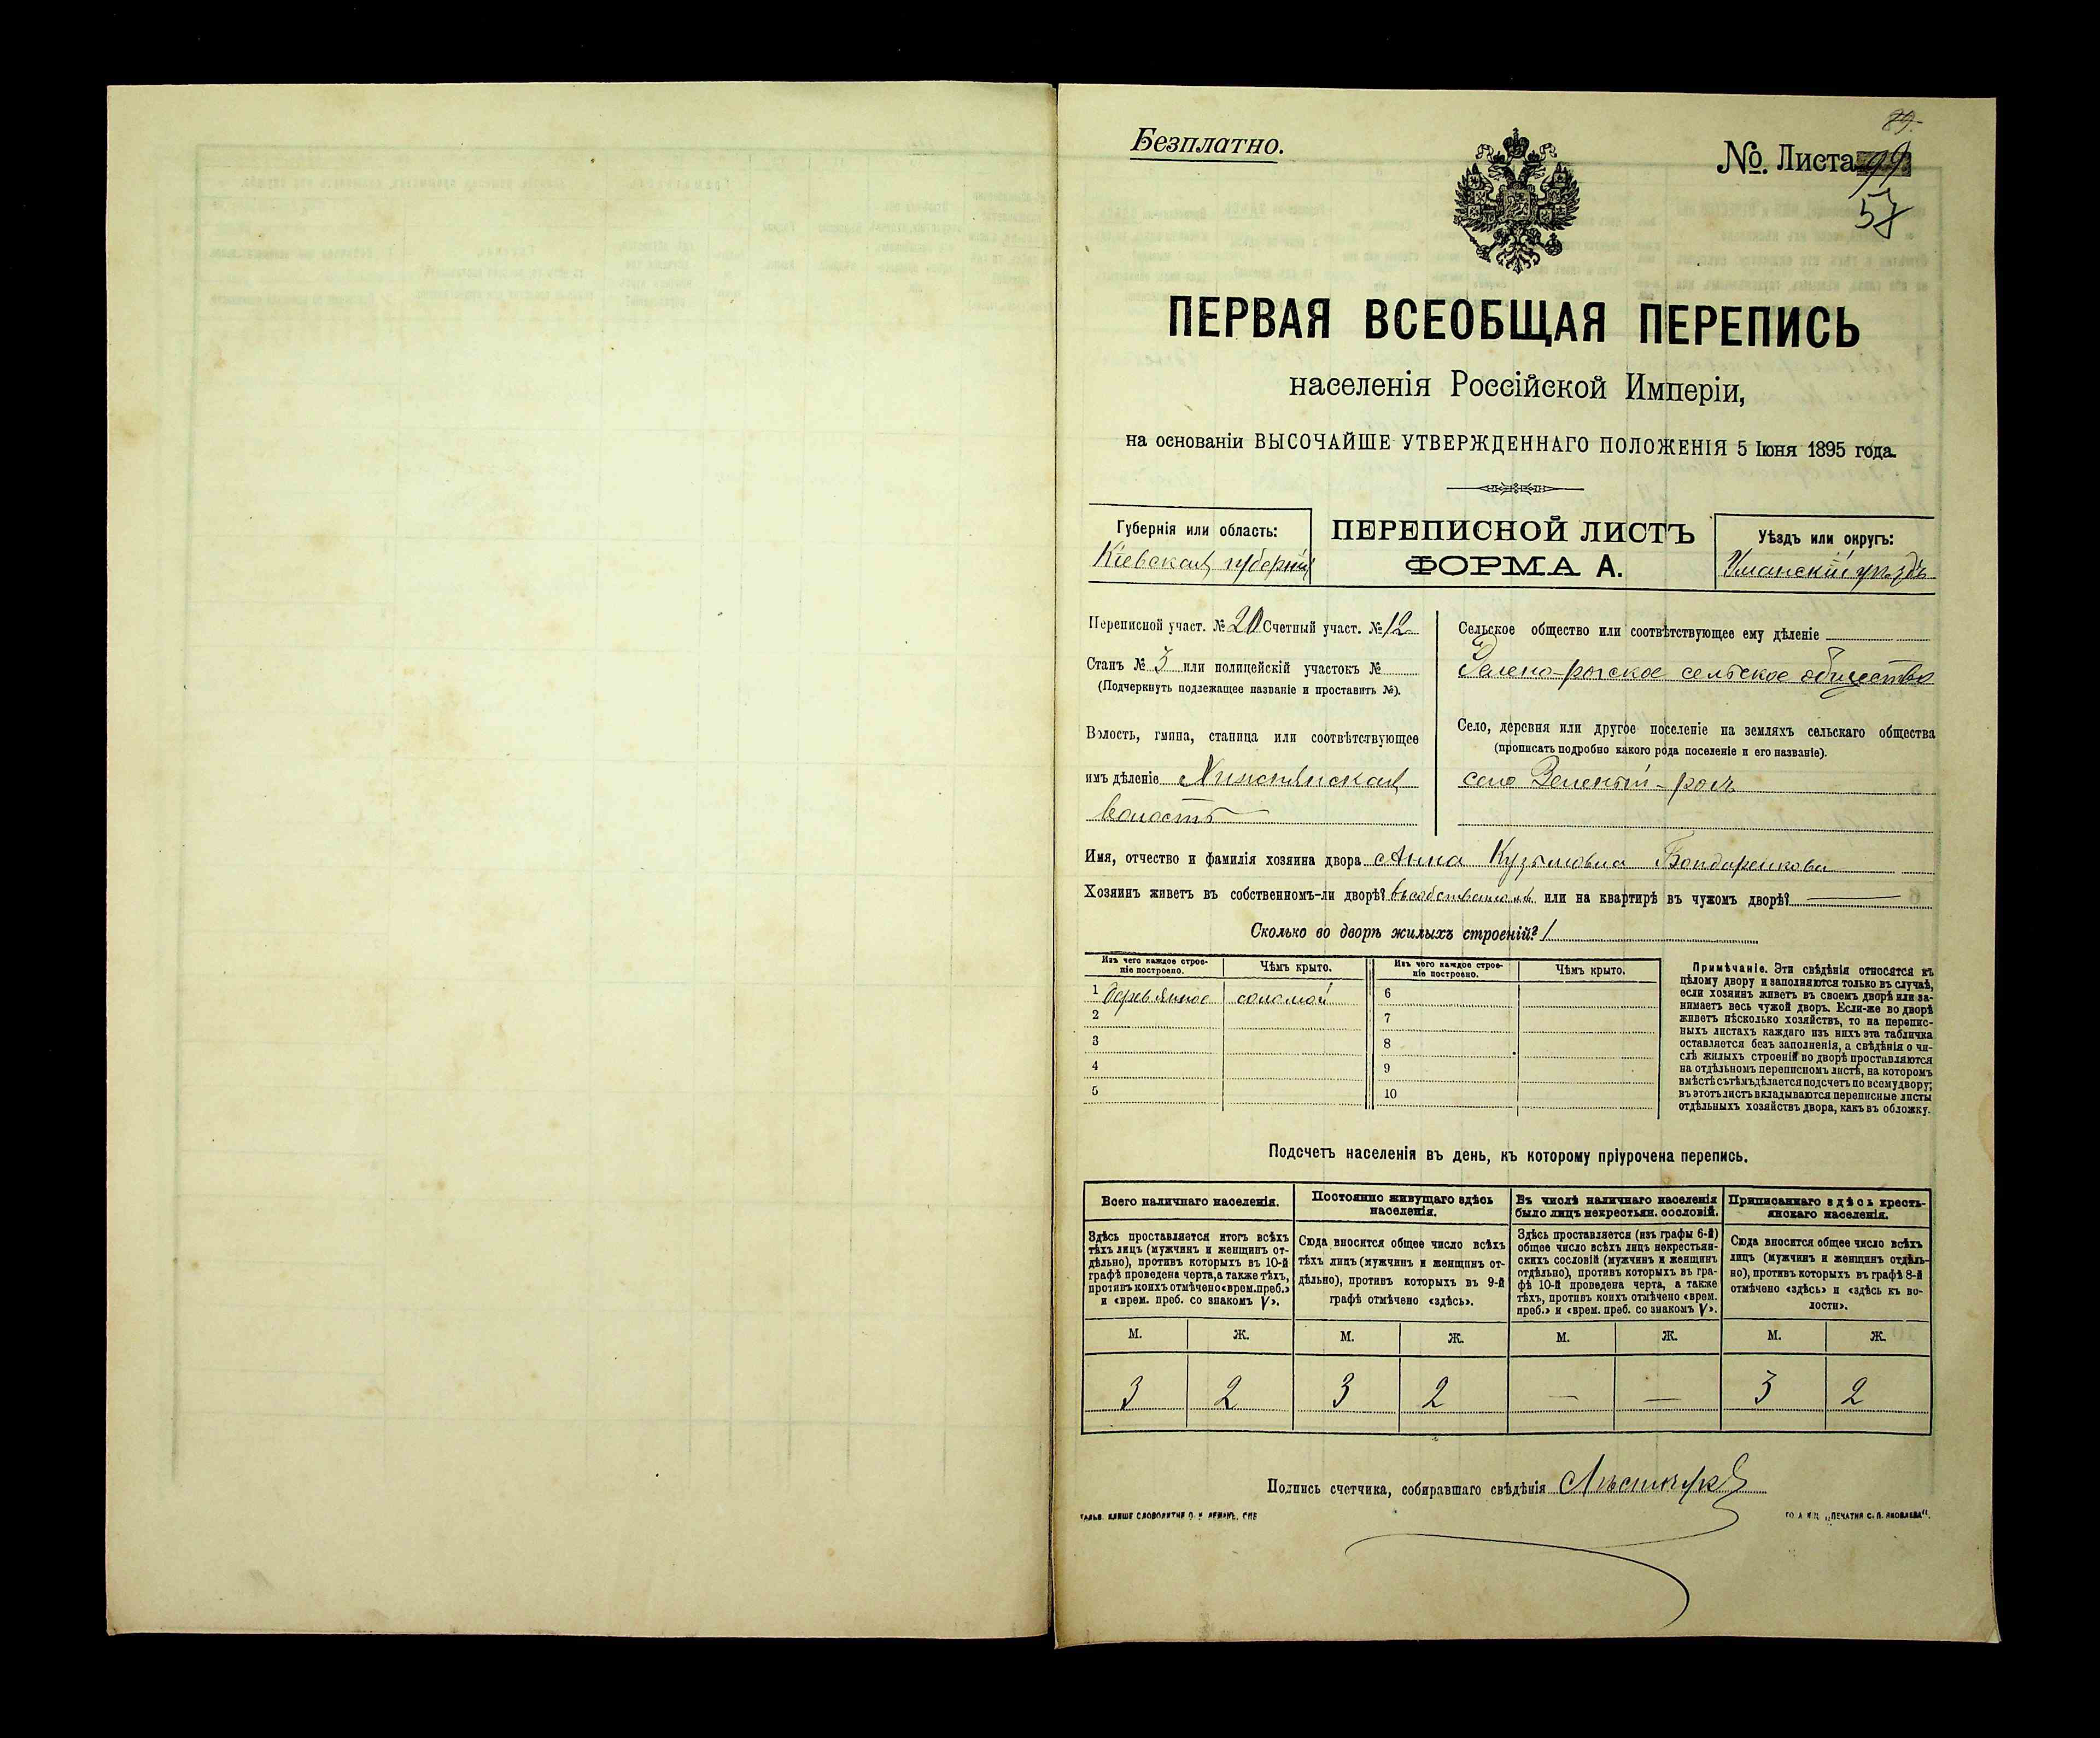 Безплатно.
89.
№. Листа 99.
57
ПЕРВАЯ ВСЕОБЩАЯ ПЕРЕПИСЬ
населенія Россійской Имперіи,
на основаніи ВЫСОЧАЙШЕ УТВЕРЖДЕННАГО ПОЛОЖЕНІЯ 5 Іюня 1895 года.
Губернія или область:
Кіевская губернія
ПЕРЕПИСНОЙ ЛИСТЪ
ФОРМА А.
Уѣздъ или округъ:
Уманскій уѣздъ
Переписной участ. № 20 Счетный участ. № 12
Станъ № 3 или полицейскій участокъ №
(Подчеркнуть подлежащее названіе и проставить №).
Волость, гмина, станица или соотвѣтствующее
имъ дѣленіе
волость
Сельское общество или соотвѣтствующее ему дѣленіе
Зелено-рогское сельское общество
Село, деревня или другое поселеніе на земляхъ сельскаго общества
(прописать подробно какого рода поселеніе и его названіе).
село Зеленый-рогъ
Имя, отчество и фамилія хозяина двора Анна Кузьмовна Бондаренкова
Хозяинъ живетъ въ собственномъ-ли дворѣ? въ собственномъ или на квартирѣ въ чужомъ дворѣ? —
Сколько во дворѣ жилыхъ строеній? 1
Изъ чего каждое строе-
ніе построено.
Чѣмъ крыто.
Изъ чего каждое строе-
ніе построено.
Чѣмъ крыто.
1 деревянное соломой 6
2 7
3 8
4 9
5 10
Примѣчаніе. Эти свѣдѣнія относятся къ
цѣлому двору и заполняются только въ случаѣ,
если хозяинъ живетъ въ своемъ дворѣ или за-
нимаетъ весь чужой дворъ. Если-же во дворѣ
живетъ нѣсколько хозяйствъ, то на перепис-
ныхъ листахъ каждаго изъ нихъ эта табличка
оставляется безъ заполненія, а свѣдѣнія о чи-
слѣ жилыхъ строеній во дворѣ проставляются
на отдѣльномъ переписномъ листѣ, на которомъ
вмѣстѣ съ тѣмъ дѣлается подсчетъ по всему двору;
въ этотъ листъ вкладываются переписные листы
отдѣльныхъ хозяйствъ двора, какъ въ обложку.
Подсчетъ населенія въ день, къ которому пріурочена перепись.
Всего наличнаго населенія.
Здѣсь проставляется итогъ всѣхъ
тѣхъ лицъ (мужчинъ и женщинъ от-
дѣльно), противъ которыхъ въ 10-й
графѣ проведена черта, а также тѣхъ,
противъ коихъ отмѣчено «врем. преб.»
и «врем. преб. со знакомъ V».
Постоянно живущаго здѣсь
населенія.
Сюда вносится общее число всѣхъ
тѣхъ лицъ (мужчинъ и женщинъ от-
дѣльно), противъ которыхъ въ 9-й
графѣ отмѣчено «здѣсь».
Въ числѣ наличнаго населенія
было лицъ некрестьян. сословій.
Здѣсь проставляется (изъ графы 6-й)
общее число всѣхъ лицъ некрестьян-
скихъ сословій (мужчинъ и женщинъ
отдѣльно), противъ которыхъ въ гра-
фѣ 10-й проведена черта, а также
тѣхъ, противъ коихъ отмѣчено «врем.
преб.» и «врем. преб. со знакомъ V».
Приписаннаго здѣсь кресть-
янскаго населенія.
Сюда вносится общее число всѣхъ
лицъ (мужчинъ и женщинъ отдѣль-
но), противъ которыхъ въ графѣ 8-й
отмѣчено «здѣсь» и «здѣсь къ во-
лости».
М. Ж. М. Ж. М. Ж. М. Ж.
3 2 3 2 — — 3 2
Подпись счетчика, собиравшаго свѣдѣнія
ГАЛЬВ. КЛИШЕ СЛОВОЛИТНИ О. И. ЛЕМАНЪ, СПБ
„ПЕЧАТНЯ С. П. ЯКОВЛЕВА“.